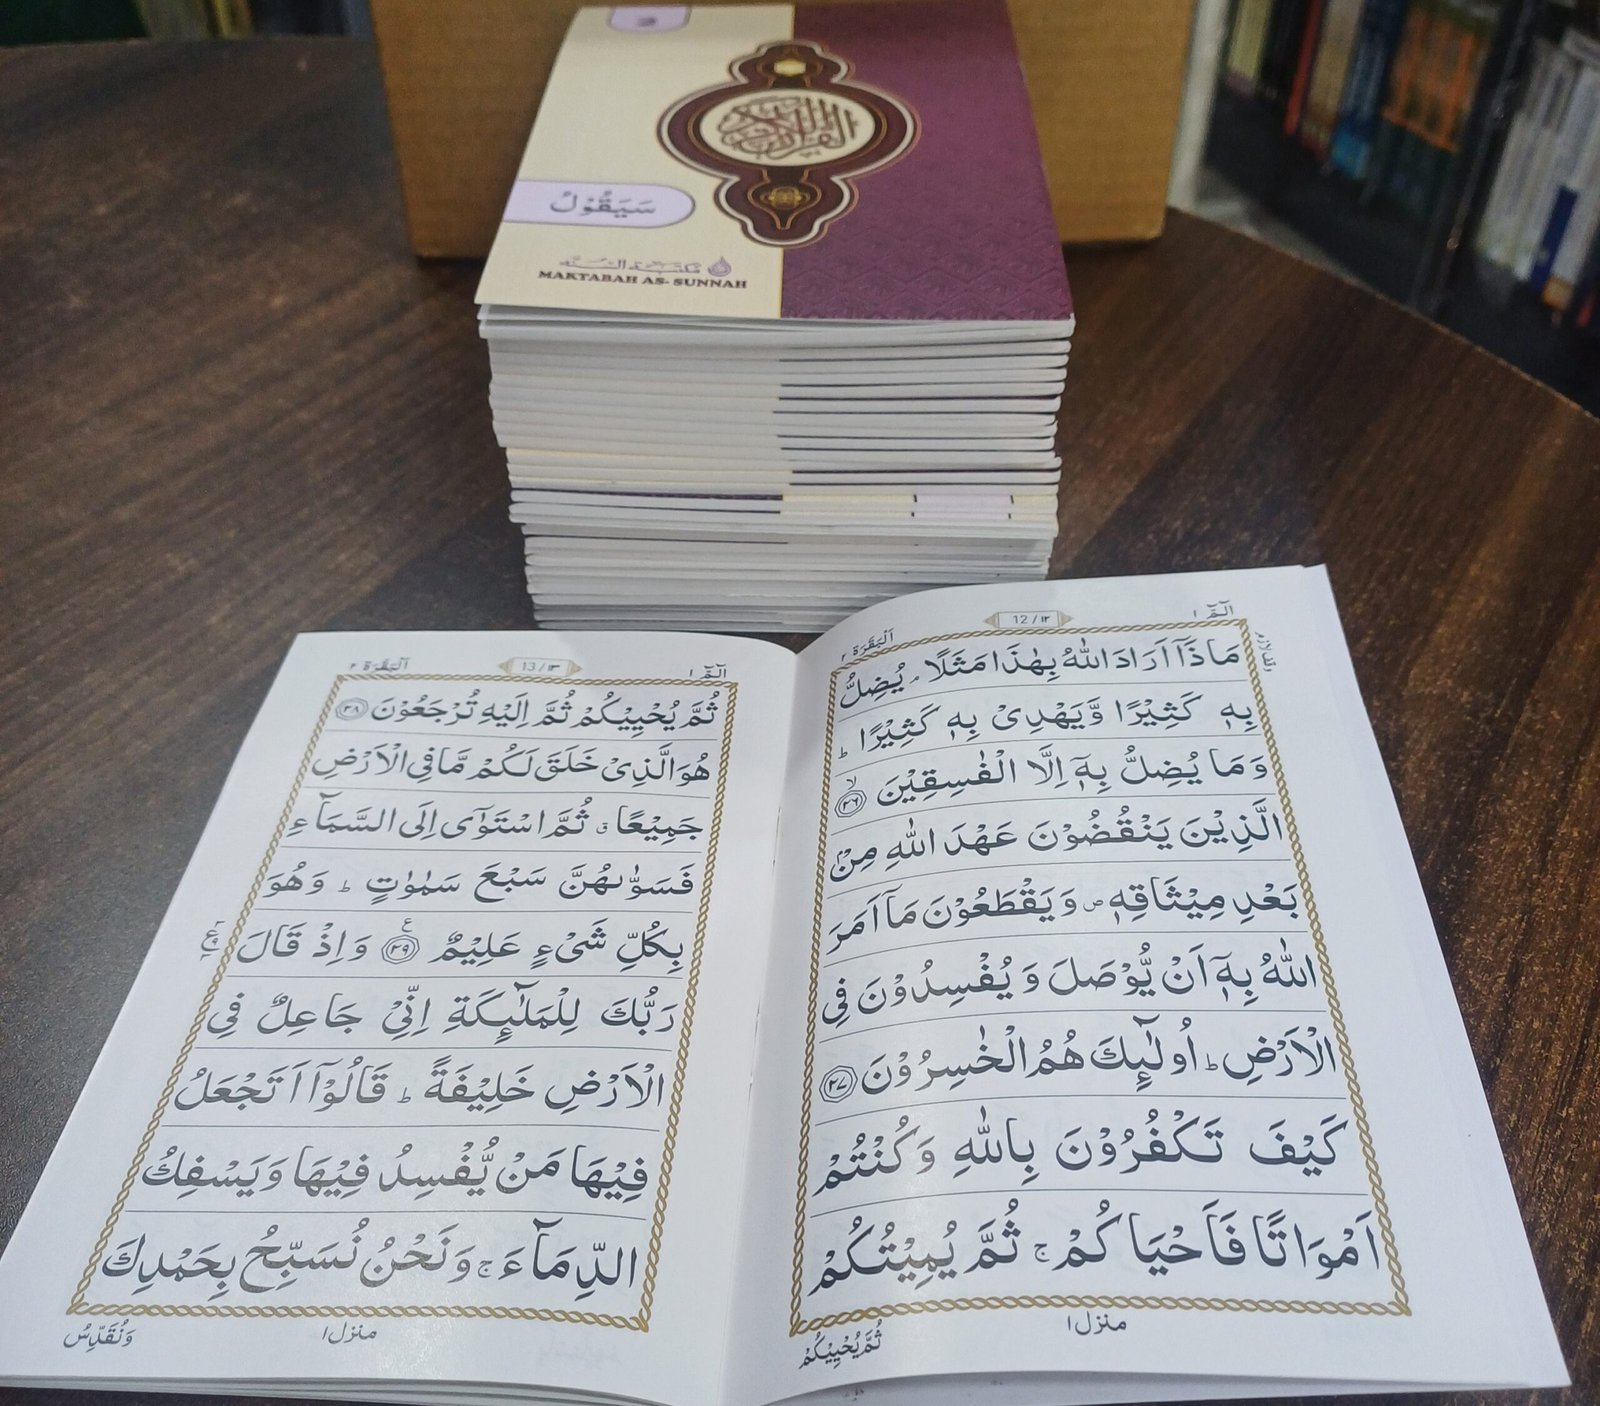 القرآن الكريم
سَيَقُوْلُ
مكتبة السنة
MAKTABAH AS- SUNNAH
الٓمّٓ ١
12 / ١٢
اَلْبَقَرَة ٢
وقف لازم
مَاذَاۤ اَرَادَ اللّٰهُ بِهٰذَا مَثَلًا ۘ يُضِلُّ
بِهٖ كَثِيْرًا وَّيَهْدِىْ بِهٖ كَثِيْرًا ؕ
وَمَا يُضِلُّ بِهٖۤ اِلَّا الْفٰسِقِيْنَ ۙ‏ ﴿۲۶﴾
الَّذِيْنَ يَنْقُضُوْنَ عَهْدَ اللّٰهِ مِنْۢ
بَعْدِ مِيْثَاقِهٖ ۪ وَيَقْطَعُوْنَ مَاۤ اَمَرَ
اللّٰهُ بِهٖۤ اَنْ يُّوْصَلَ وَيُفْسِدُوْنَ فِى
الْاَرْضِ ؕ اُولٰٓئِكَ هُمُ الْخٰسِرُوْنَ ﴿۲۷﴾
كَيْفَ تَكْفُرُوْنَ بِاللّٰهِ وَكُنْتُمْ
اَمْوَاتًا فَاَحْيَاكُمْ ۚ ثُمَّ يُمِيْتُكُمْ
منزل ١
ثُمَّ يُحْيِيْكُمْ
الٓمّٓ ١
13 / ١٣
اَلْبَقَرَة ٢
ثُمَّ يُحْيِيْكُمْ ثُمَّ اِلَيْهِ تُرْجَعُوْنَ ﴿۲۸﴾
هُوَ الَّذِىْ خَلَقَ لَكُمْ مَّا فِى الْاَرْضِ
جَمِيْعًا ۗ ثُمَّ اسْتَوٰۤى اِلَى السَّمَآءِ
فَسَوّٰٮهُنَّ سَبْعَ سَمٰوٰتٍ ؕ وَهُوَ
بِكُلِّ شَىْءٍ عَلِيْمٌ ﴿۲۹﴾ وَاِذْ قَالَ
رَبُّكَ لِلْمَلٰٓئِكَةِ اِنِّىْ جَاعِلٌ فِى
الْاَرْضِ خَلِيْفَةً ؕ قَالُوْاۤ اَتَجْعَلُ
فِيْهَا مَنْ يُّفْسِدُ فِيْهَا وَيَسْفِكُ
الدِّمَآءَ ۚ وَنَحْنُ نُسَبِّحُ بِحَمْدِكَ
منزل ١
وَنُقَدِّسُ